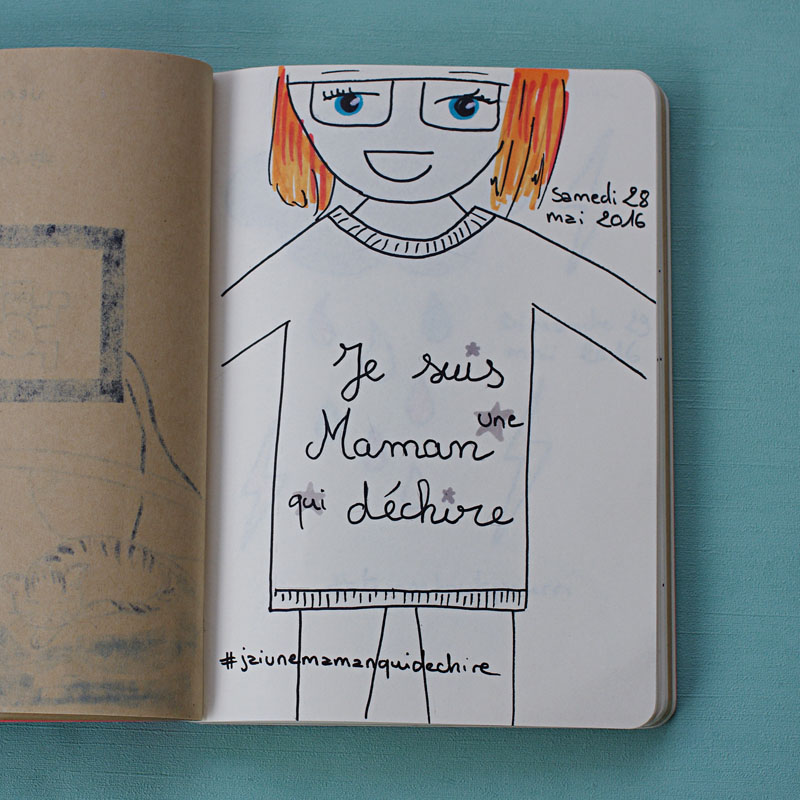 samedi 28
mai 2016
Je suis
une
Maman
qui déchire
#jaiunemamanquidechire